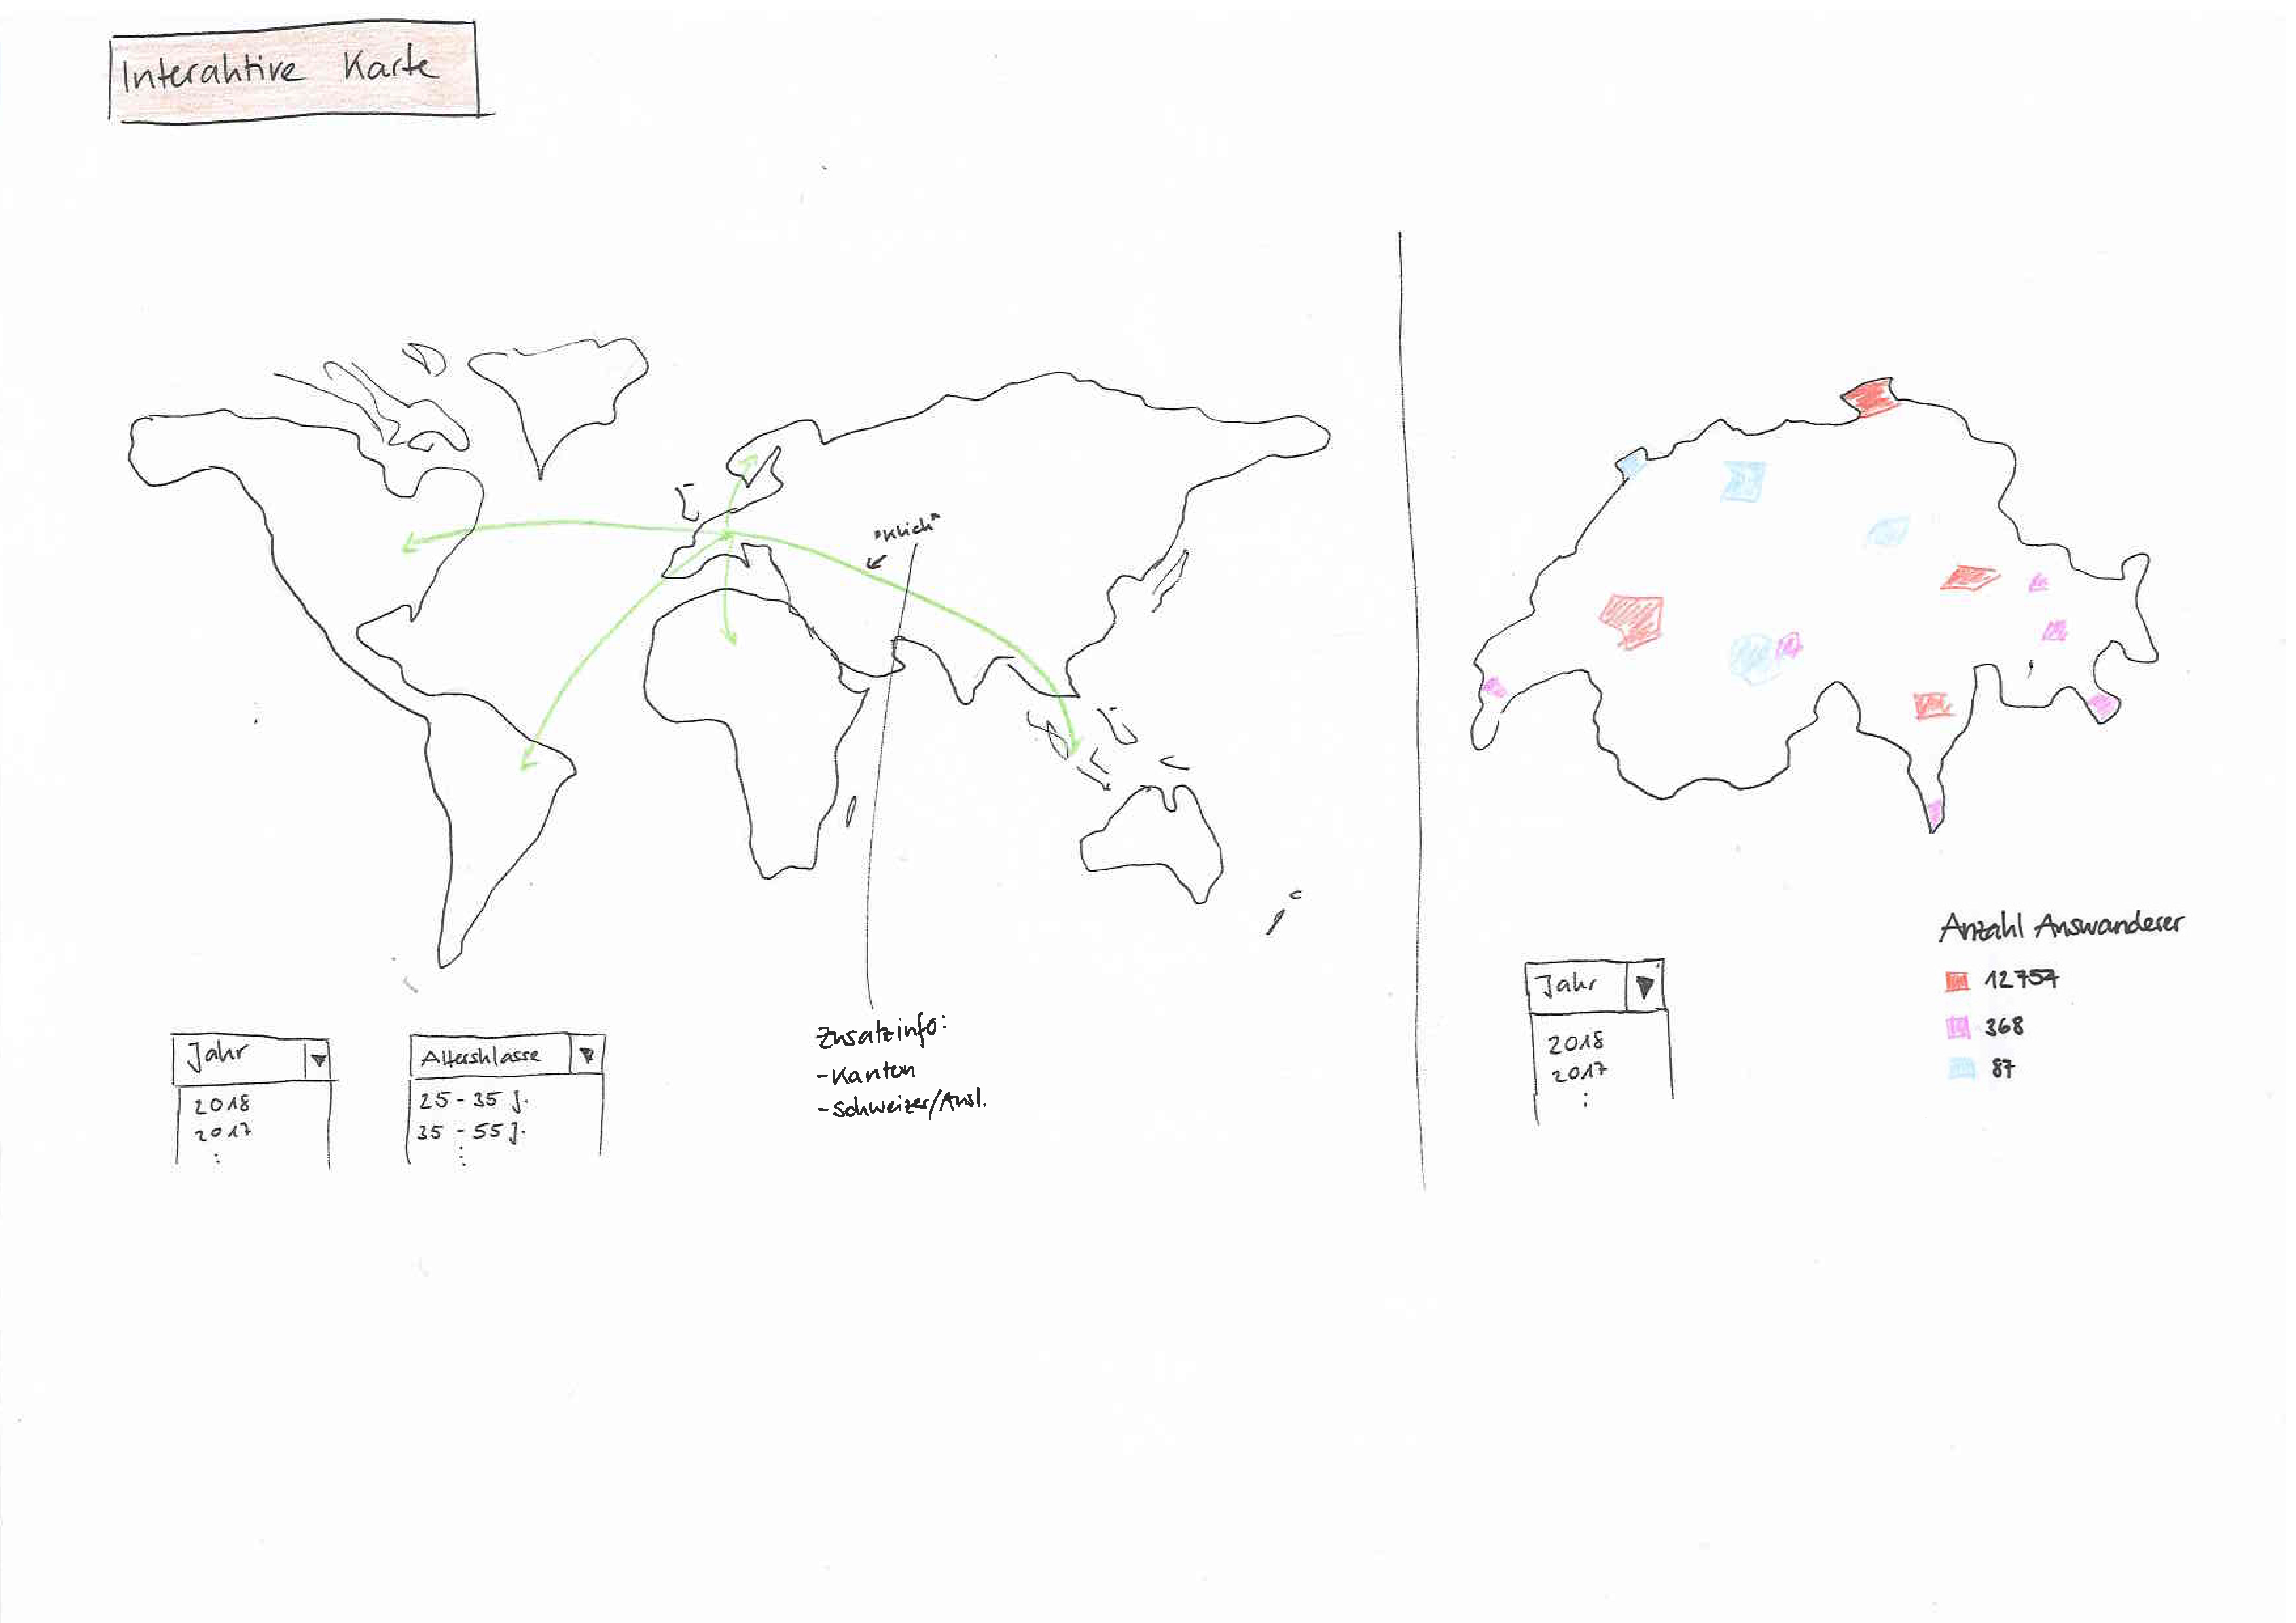 Interaktive Karte
"Klick"
Jahr
2018
2017
:
Altersklasse
25 - 35 J.
35 - 55 J.
:
Zusatzinfo:
- Kanton
- Schweizer/Ausl.
Jahr
2018
2017
:
Anzahl Auswanderer
12754
368
87